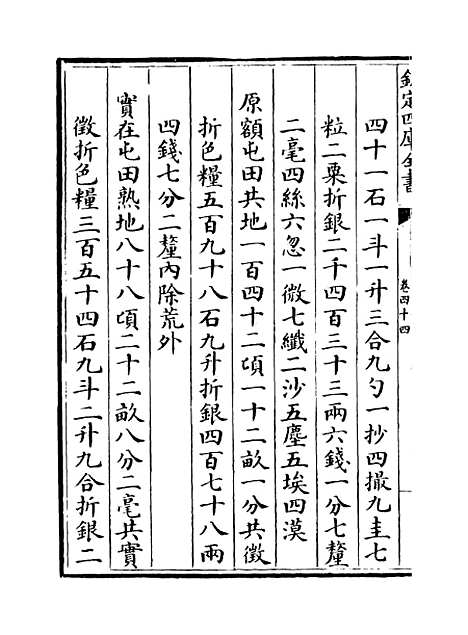 欽定四庫全書
卷四十四
四十一石一斗一升三合九勺一抄四撮九圭七
粒二粟折銀二千四百三十三兩六錢一分七釐
二毫四絲六忽一微七纖二沙五塵五埃四漠
原額屯田共地一百四十二頃一十二畝一分共徵
折色糧五百九十八石九升折銀四百七十八兩
四錢七分二釐內除荒外
實在屯田熟地八十八頃二十二畝八分二毫共實
徵折色糧三百五十四石九斗二升九合折銀二